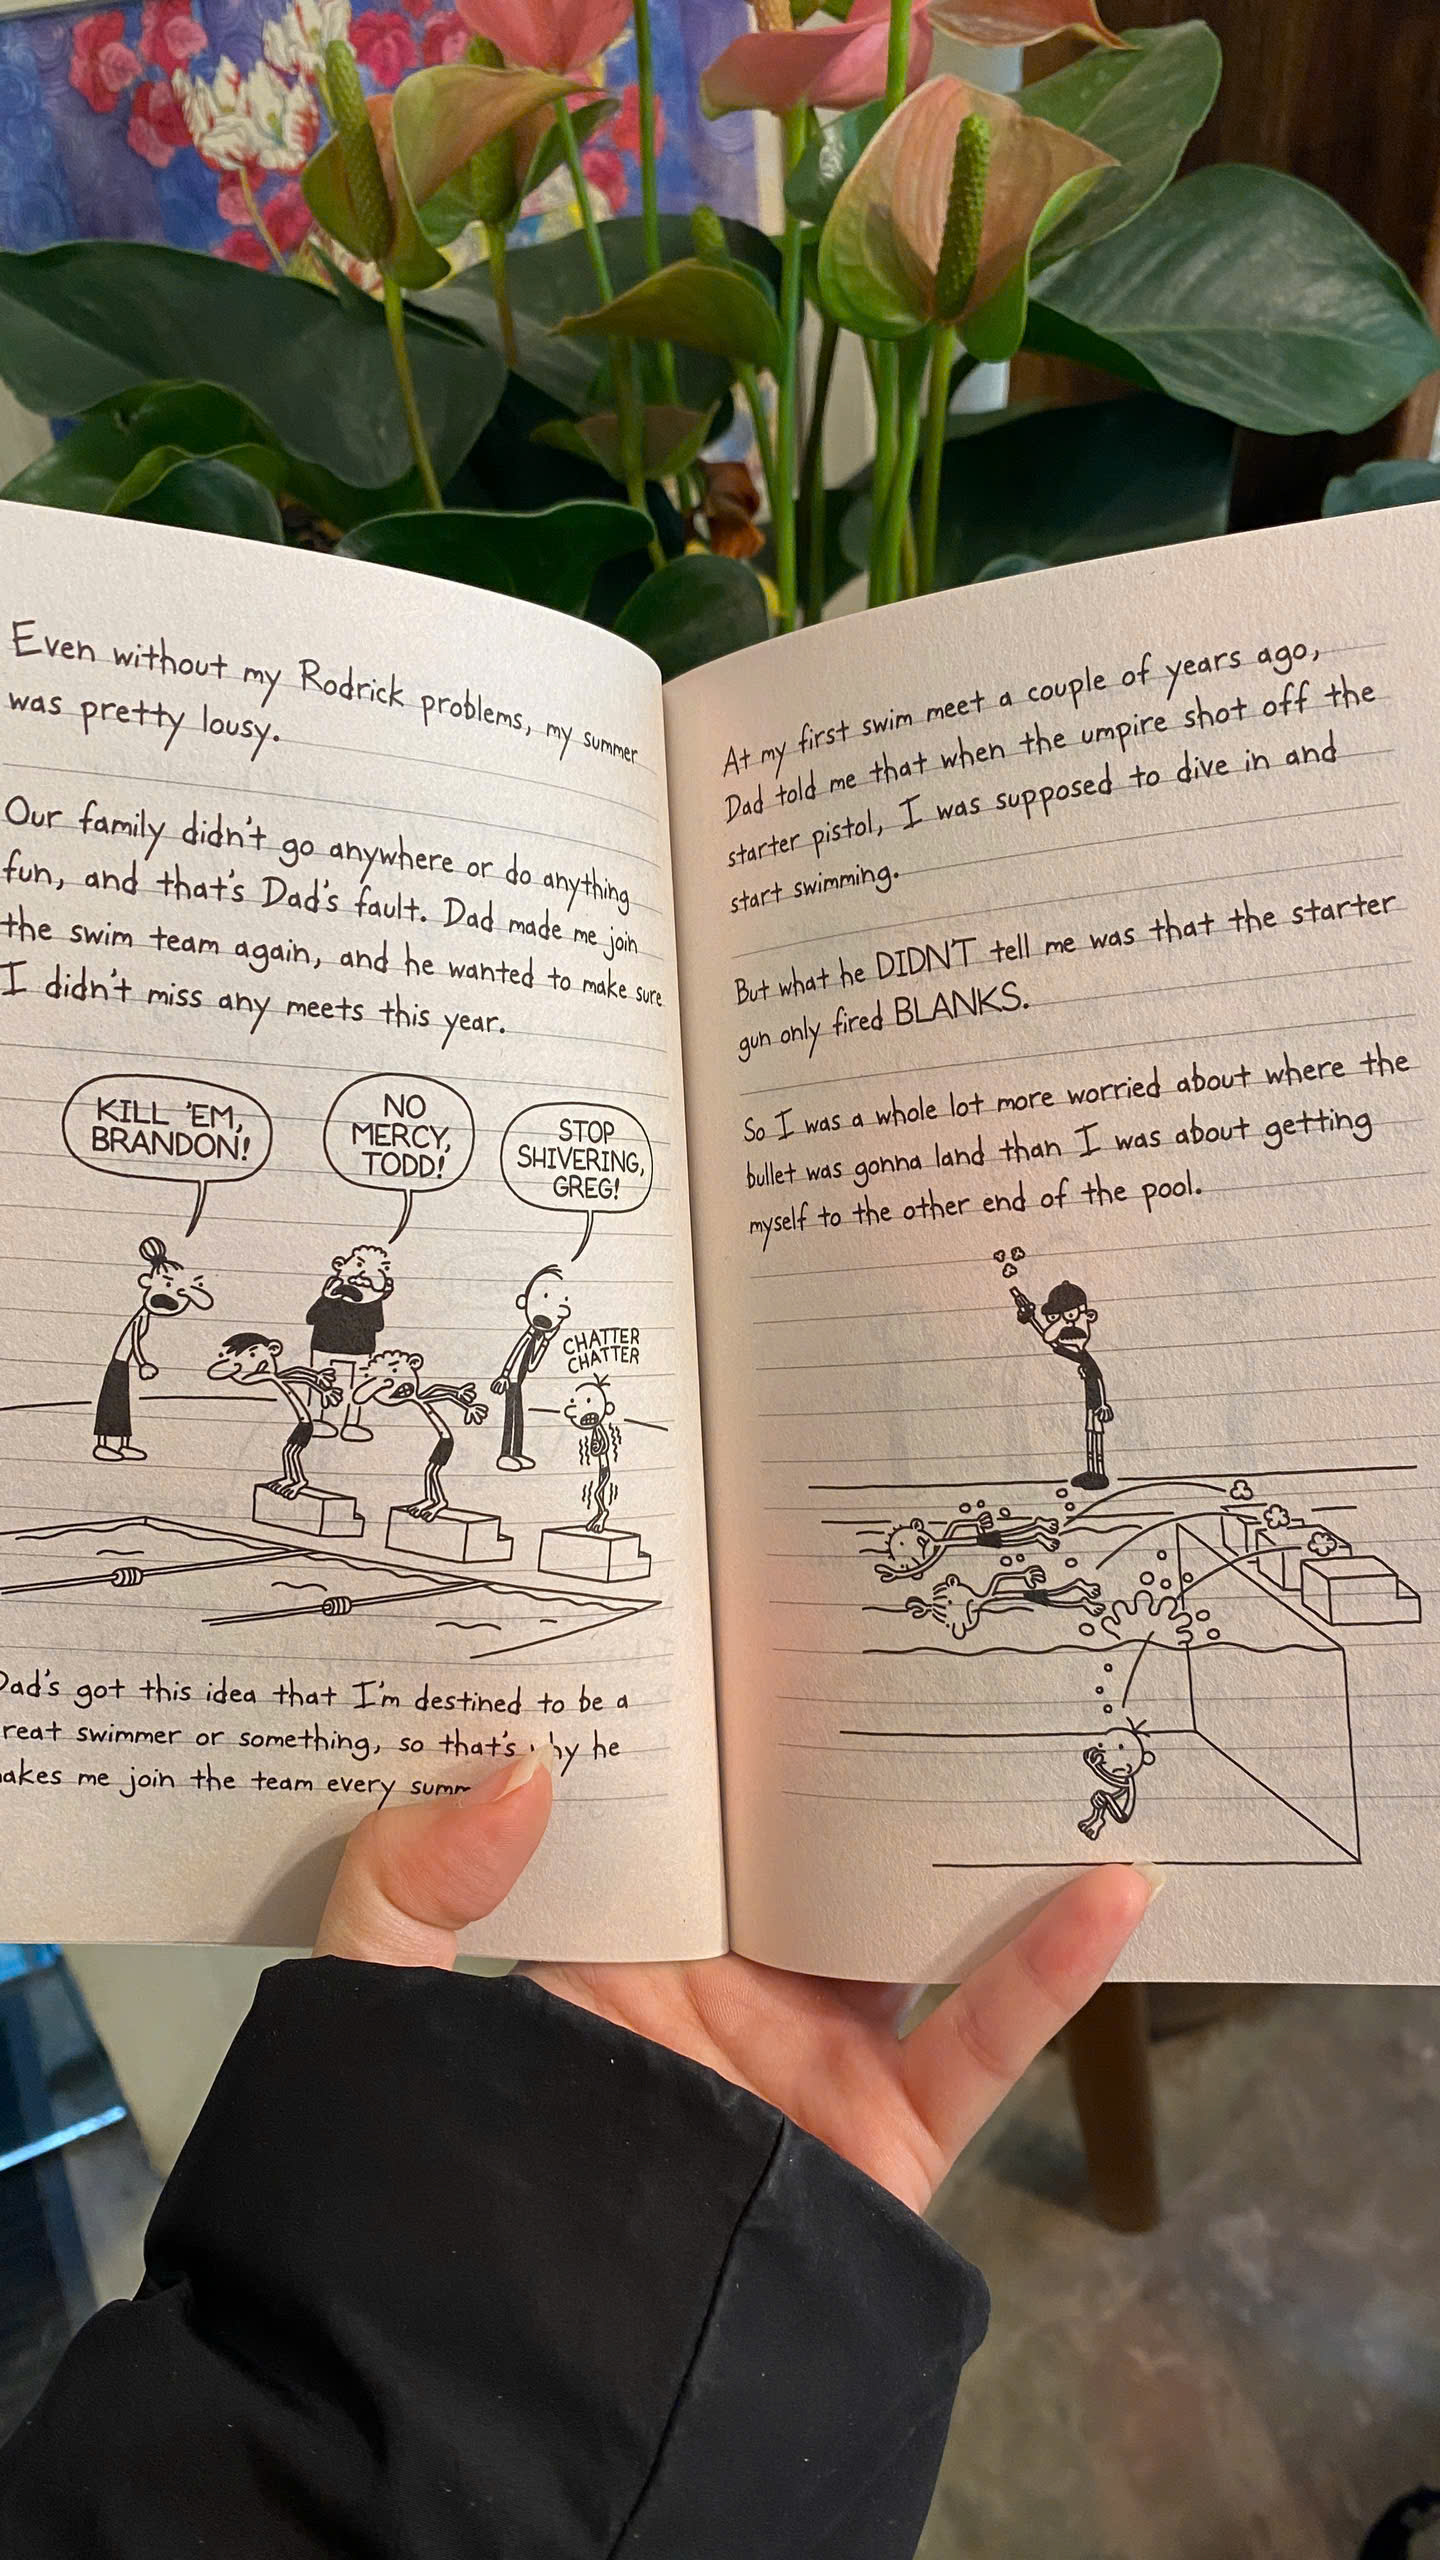 Even without my Rodrick problems, my summer
was pretty lousy.
Our family didn't go anywhere or do anything
fun, and that's Dad's fault. Dad made me join
the swim team again, and he wanted to make sure
I didn't miss any meets this year.
KILL 'EM,
BRANDON!
NO
MERCY,
TODD!
STOP
SHIVERING,
GREG!
CHATTER
CHATTER
Dad's got this idea that I'm destined to be a
reat swimmer or something, so that's hy he
akes me join the team every summ
At my first swim meet a couple of years ago,
Dad told me that when the umpire shot off the
starter pistol, I was supposed to dive in and
start swimming.
But what he DIDN'T tell me was that the starter
gun only fired BLANKS.
So I was a whole lot more worried about where the
bullet was gonna land than I was about getting
myself to the other end of the pool.